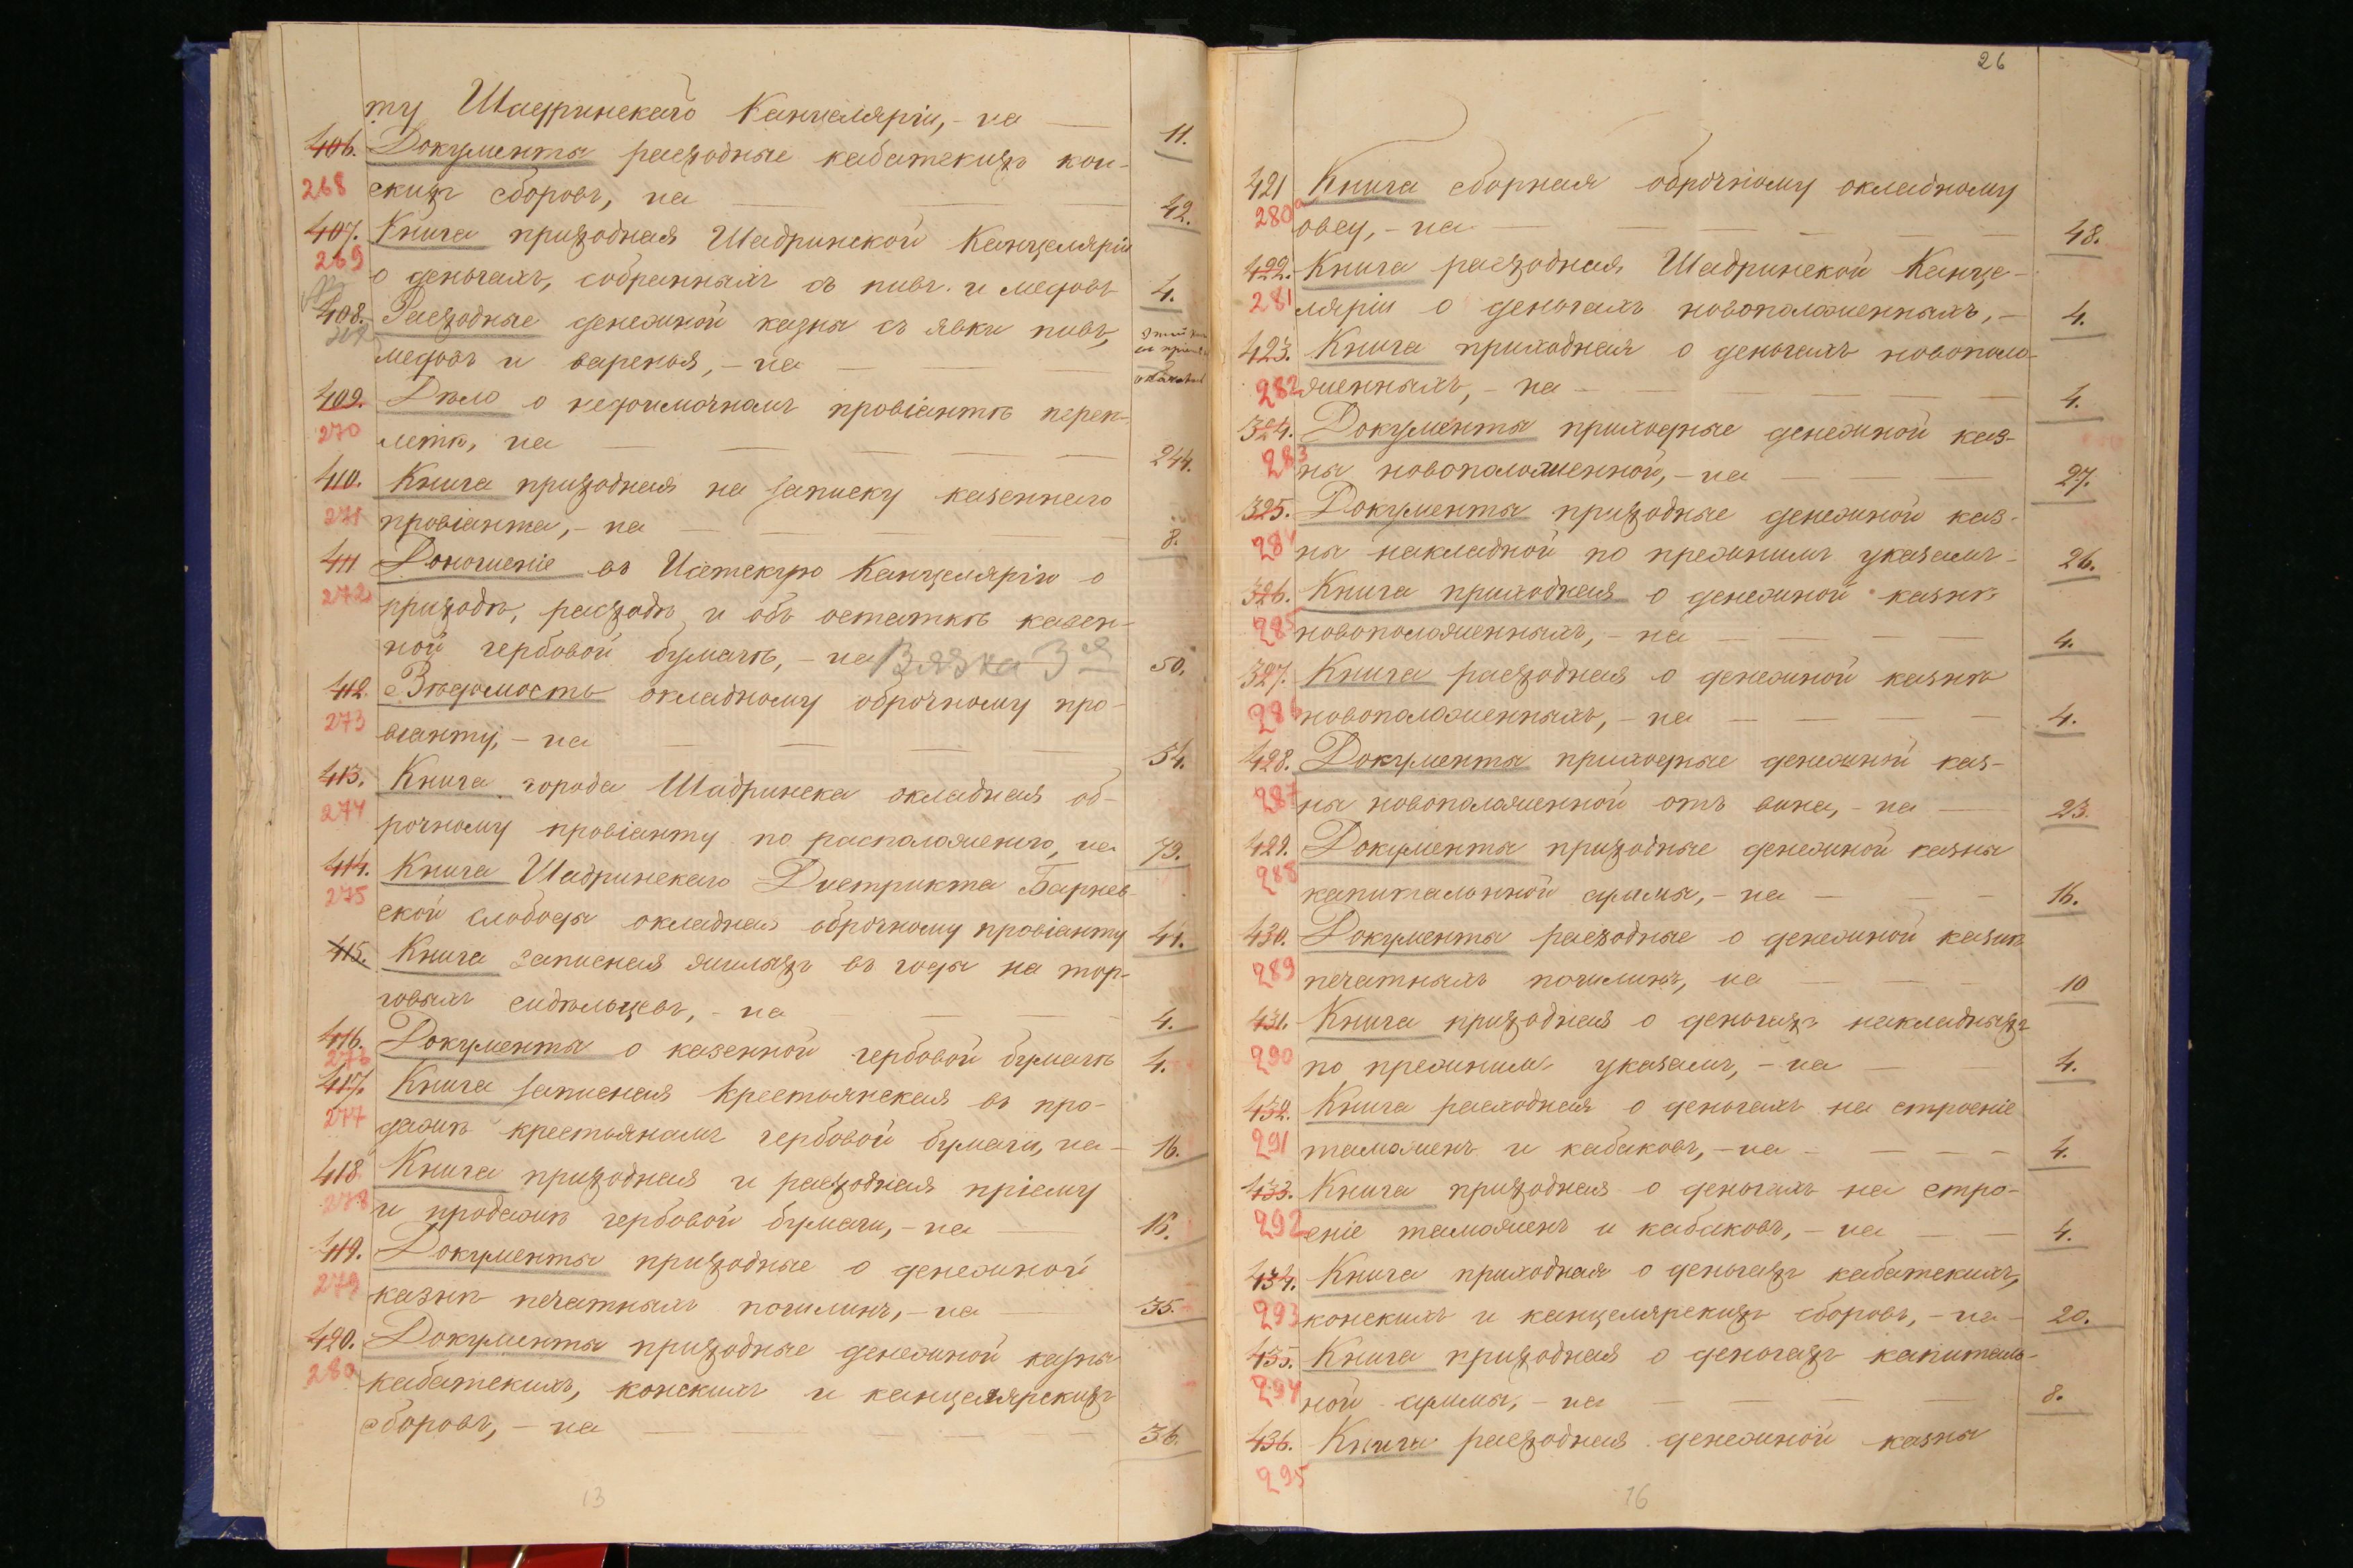 ту Шадринскаго Канцеляріи, - на — 11.
406. Документы расходные кабатскихъ кон-
268 скихъ сборовъ, на — 42.
407. Книга приходная Шадринской Канцеляріи
269 о деньгахъ, собранныхъ съ пивъ и медовъ 4.
408. Расходные денежной казны съ явки пивъ,
медовъ и варенья, - на —
409. Дѣло о недоимочномъ провіантѣ переп-
270 летѣ, на — 244.
410. Книга приходная на записку казеннаго
271 провіанта, - на — 8.
411 Доношеніе въ Исетскую Канцелярію о
272 приходѣ, расходѣ и объ остаткѣ казен-
ной гербовой бумагѣ, - на Вязка 3я 50.
412. Вѣдомость окладному оброчному про-
273 віанту, - на — 54.
413. Книга города Шадринска окладная об-
274 рочному провіанту по расположенію, на 79.
414. Книга Шадринскаго Дистрикта Барнев-
275 ской слободы окладная оброчному провіанту 41.
415. Книга записная жилыхъ въ годы на тор-
говыхъ сидѣльцевъ, - на — 4.
416. Документы о казенной гербовой бумагѣ 4.
276
417. Книга записная крестьянская въ про-
277 дажѣ крестьянамъ гербовой бумаги, на — 16.
418. Книга приходная и расходная пріему
278 и продажѣ гербовой бумаги, - на — 15.
419. Документы приходные о денежной
279 казнѣ печатныхъ пошлинъ, - на — 35.
420. Документы приходные денежной казны
280 кабатскихъ, конскихъ и канцелярскихъ
сборовъ, - на — 36.
13
26
421 Книга сборная оброчному окладному
280а овсу, - на — 48.
422. Книга расходная Шадринской Канце-
281 ляріи о деньгахъ новоположенныхъ, — 4.
423. Книга приходная о деньгахъ новополо-
282 женныхъ, - на — 4.
324. Документы приходные денежной каз-
283 ны новоположенной, - на — 27.
325. Документы приходные денежной каз-
284 ны накладной по прежнимъ указамъ - 26.
326. Книга приходная о денежной казнѣ
285 новоположенныхъ, - на — 4.
327. Книга расходная о денежной казнѣ
286 новоположенныхъ, - на — 4.
428. Документы приходные денежной каз-
287 ны новоположенной отъ вина, - на — 23.
429. Документы приходные денежной казны
288 капитальнной суммы, - на — 16.
430. Документы расходные о денежной казнѣ
289 печатныхъ пошлинъ, на — 10
431. Книга приходная о деньгахъ накладныхъ
290 по прежнимъ указамъ, - на — 4.
432. Книга расходная о деньгахъ на строеніе
291 таможенъ и кабаковъ, - на — 4.
433. Книга приходная о деньгахъ на стро-
292 еніе таможенъ и кабаковъ, - на — 4.
434. Книга приходная о деньгахъ кабатскихъ,
293 конскихъ и канцелярскихъ сборовъ, - на — 20.
435. Книга приходная о деньгахъ капиталь-
294 ной суммы, - на — 8.
436. Книга расходная денежной казны
295
16